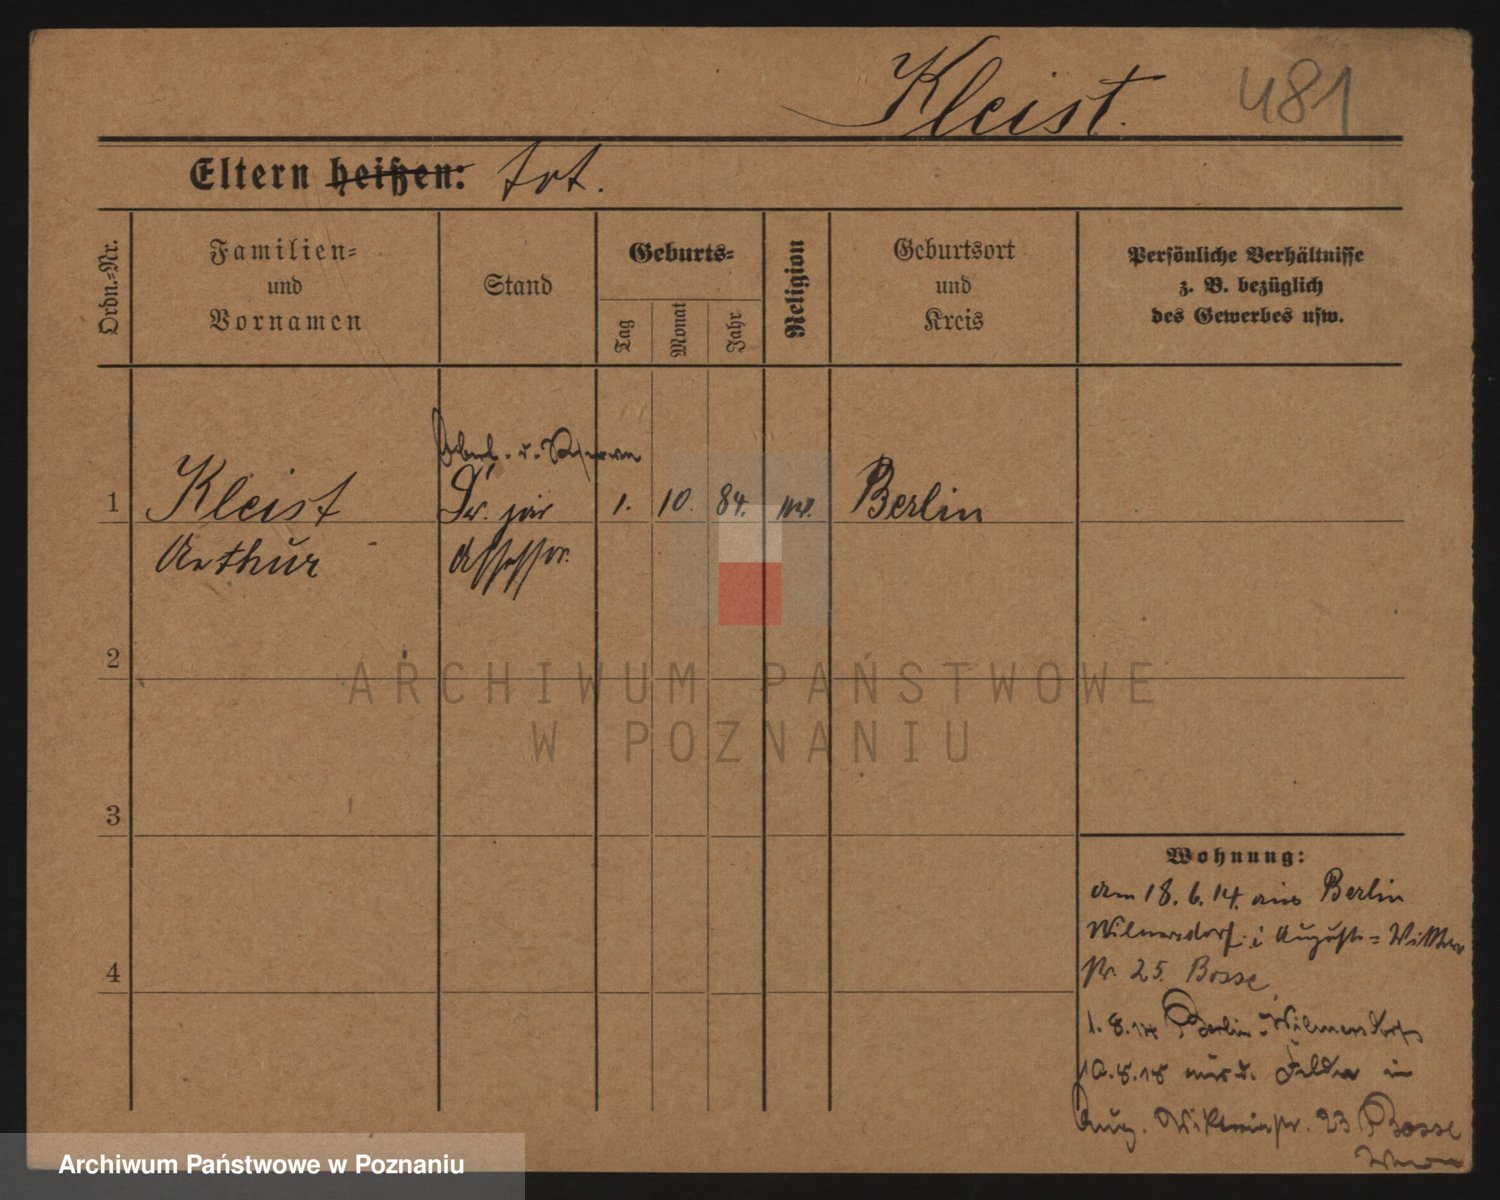 Kleist. 481
Eltern heißen: tot.
Ordn.-Nr.
Familien-
und
Vornamen
Stand
Geburts-
Tag
Monat
Jahr
Religion
Geburtsort
und
Kreis
Persönliche Verhältnisse
z. B. bezüglich
des Gewerbes usw.
1 Kleist Dr. jur 1. 10. 84. Berlin
Arthur Assessor.
2
3
4
Wohnung:
am 18. 6. 14. aus Berlin
Wilmersdorf. Auguste-Viktoria
str. 25. Bosse
1. 8. 14 Berlin-Wilmersdorf
10.8.18 aus d. Felde in
Aug. Viktoriastr. 23 Bosse
ARCHIWUM PAŃSTWOWE
W POZNANIU
Archiwum Państwowe w Poznaniu